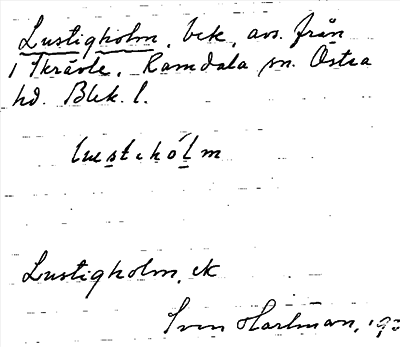 Lustigholm, bek, avs. från
1 Skrävle, Ramdala sn. Östra
hd. Blek. l.
lustihólm
Lustigholm, ek
Sven Hartman, 19